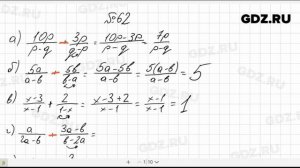 GDZ.RU
№62
а) 10p/(p-q) + 3p/(q-p) = (10p-3p)/(p-q) = 7p/(p-q)
б) 5a/(a-b) + 5b/(b-a) = (5a-5b)/(a-b) = 5(a-b)/(a-b) = 5
в) (x-3)/(x-1) + 2/(1-x) = (x-3+2)/(x-1) = (x-1)/(x-1) = 1
г) a/(2a-b) + (3a-b)/(b-2a) =
GDZ.RU